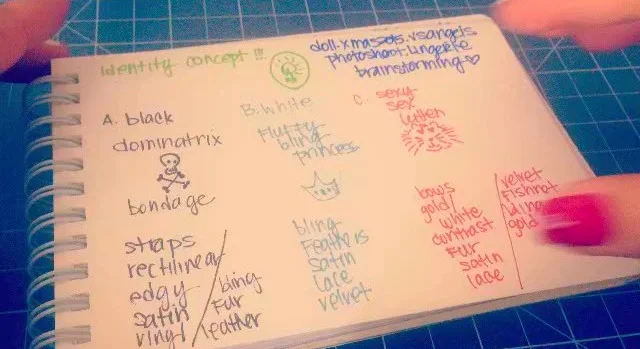 identity concept !!!
doll.xmassets.vsangels
photoshoot.lingerie
brainstorming
A. black
dominatrix
bondage
straps
rectilinear
edgy
satin
vinyl
bling
fur
leather
B. white
fluffy
bling
princess
bling
feathers
satin
lace
velvet
C. sexy
sex
kitten
bows
gold
white
contrast
fur
satin
lace
velvet
fishnet
bling
gold